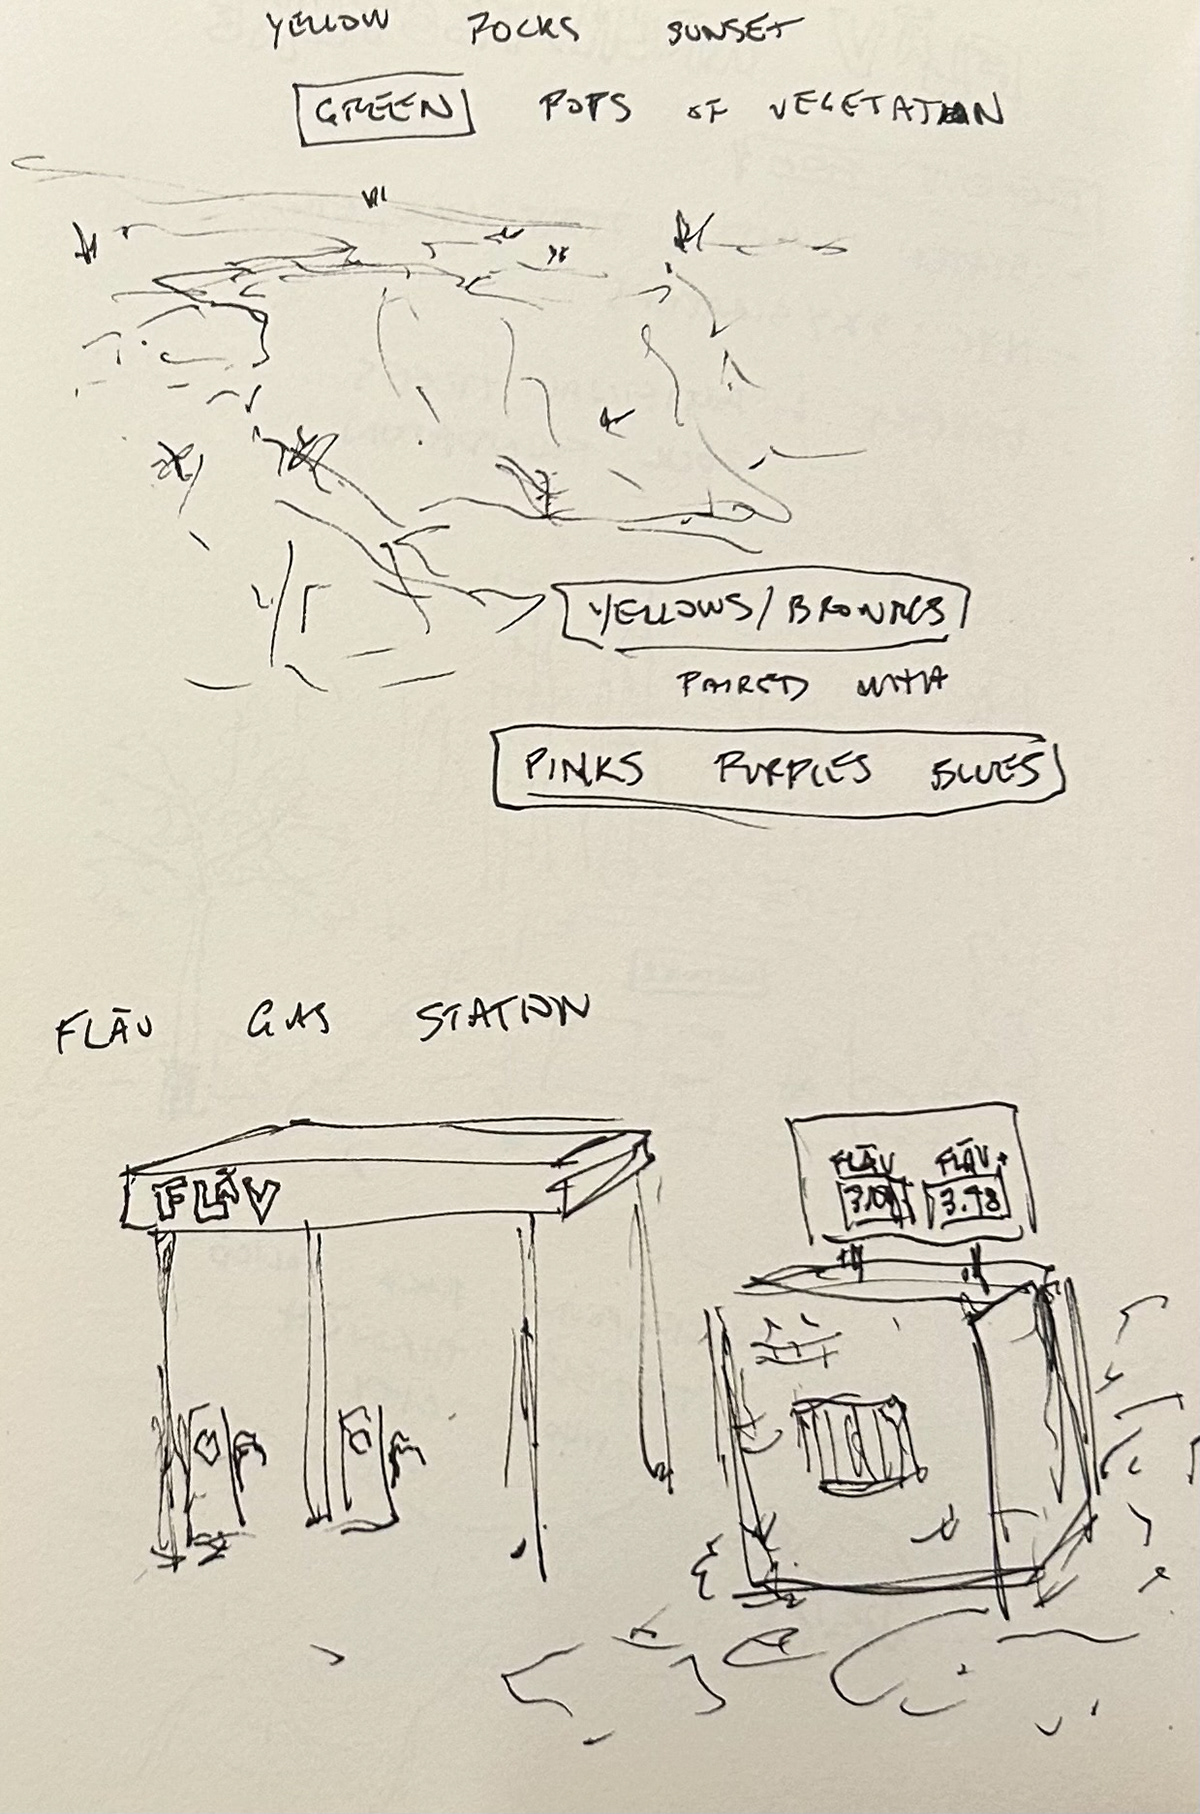 YELLOW ROCKS SUNSET
GREEN POPS OF VEGETATION
YELLOWS/BROWNS
PAIRED WITH
PINKS PURPLES BLUES
FLĀV GAS STATION
FLĀV
FLĀV FLĀV+
3.98